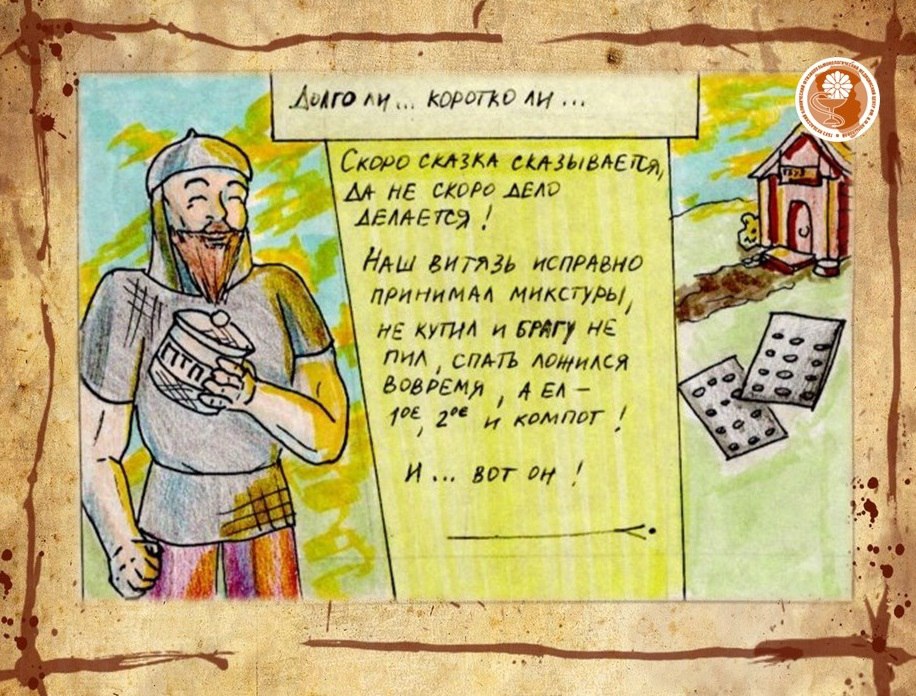 Долго ли... коротко ли...
Скоро сказка сказывается,
да не скоро дело
делается!
Наш витязь исправно
принимал микстуры,
не кутил и брагу не
пил, спать ложился
вовремя, а ел –
1ое, 2ое и компот!
И... вот он!